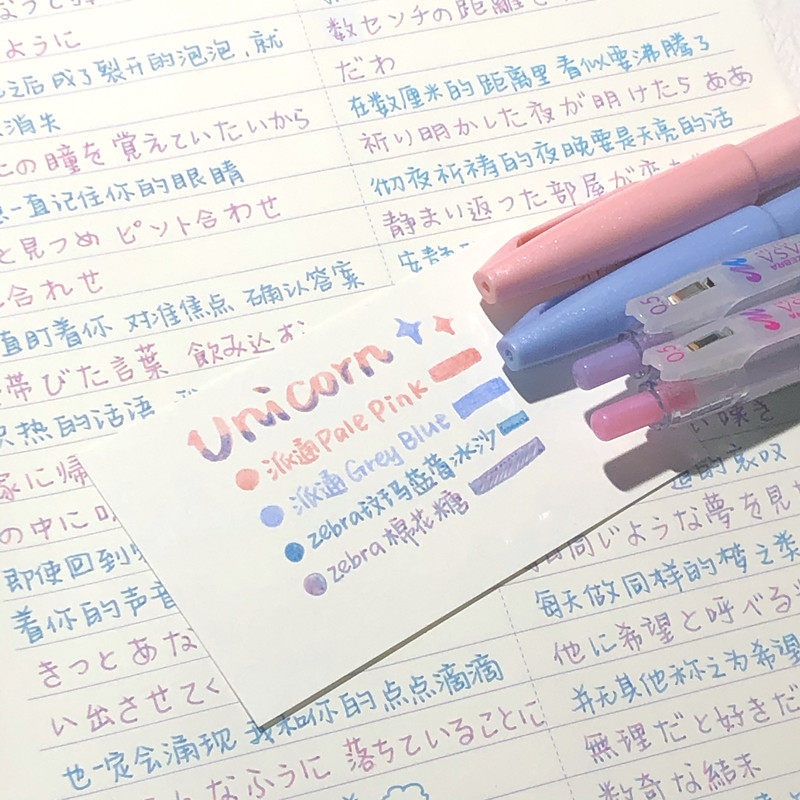 ように
之后成了裂开的泡泡，就
消失
この瞳を覚えていたいから
一直记住你的眼睛
と見つめ ピント合わせ
合れせ
直盯着你 对准焦点 确认答案
帯びた言葉 飲み込む
炽热的话语
家に帰
の中に
即使回到
着你的声音
きっとあな
い出させてく
也一定会涌现 我和你的点点滴滴
なふうに 落ちていることに
数センチの距離
だわ
在数厘米的距离里 看似要沸腾了
祈り明かした夜が明けたら ああ
彻夜祈祷的夜晚要是天亮的话
静まい返った部屋が
安静
い嘆き
的哀叹
同じような夢を見
每天做同样的梦之类
他に希望と呼べる
并无其他称之为希望
無理だと好きだ
数奇な結末
Unicorn
派通Pale Pink
派通Grey Blue
zebra玟玛蓝莓冰沙
zebra棉花糖
0.5
ZEBRA
SASA
0.5
SA